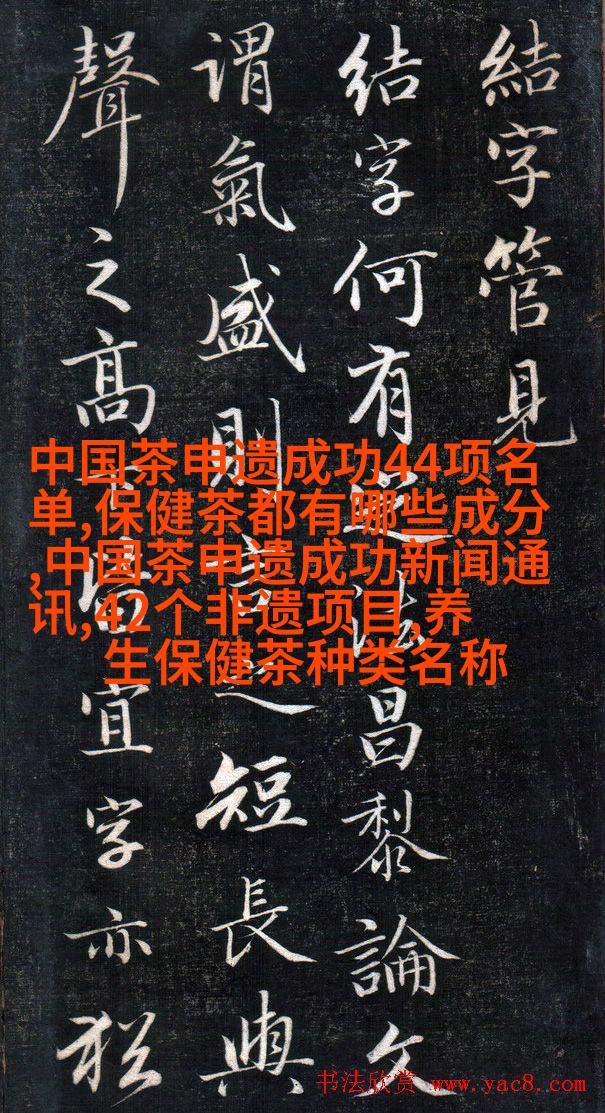 結字管見
结字何有定法昌黎論文
謂氣盛則言之短長與
聲之髙下皆宜字亦猶
中国茶申遗成功44项名
单,保健茶都有哪些成分
,中国茶申遗成功新闻通
讯,42个非遗项目,养
生保健茶种类名称
书法欣赏 www.yac8.com